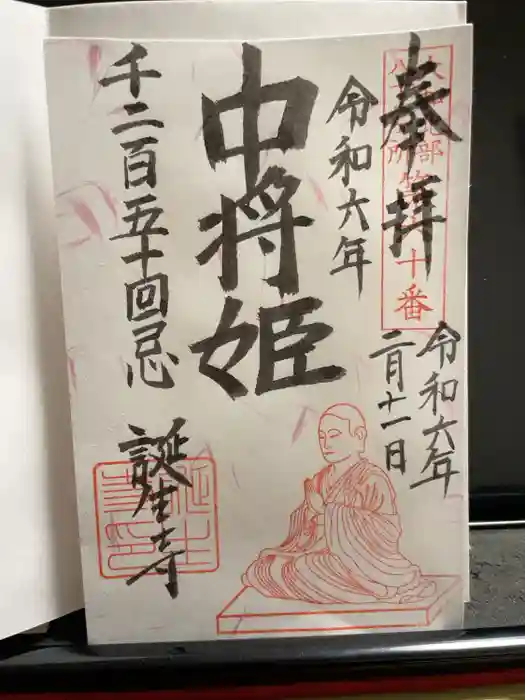 奉拝
令和六年
二月十一日
令和六年
中将姫
千二百五十回忌
誕生寺